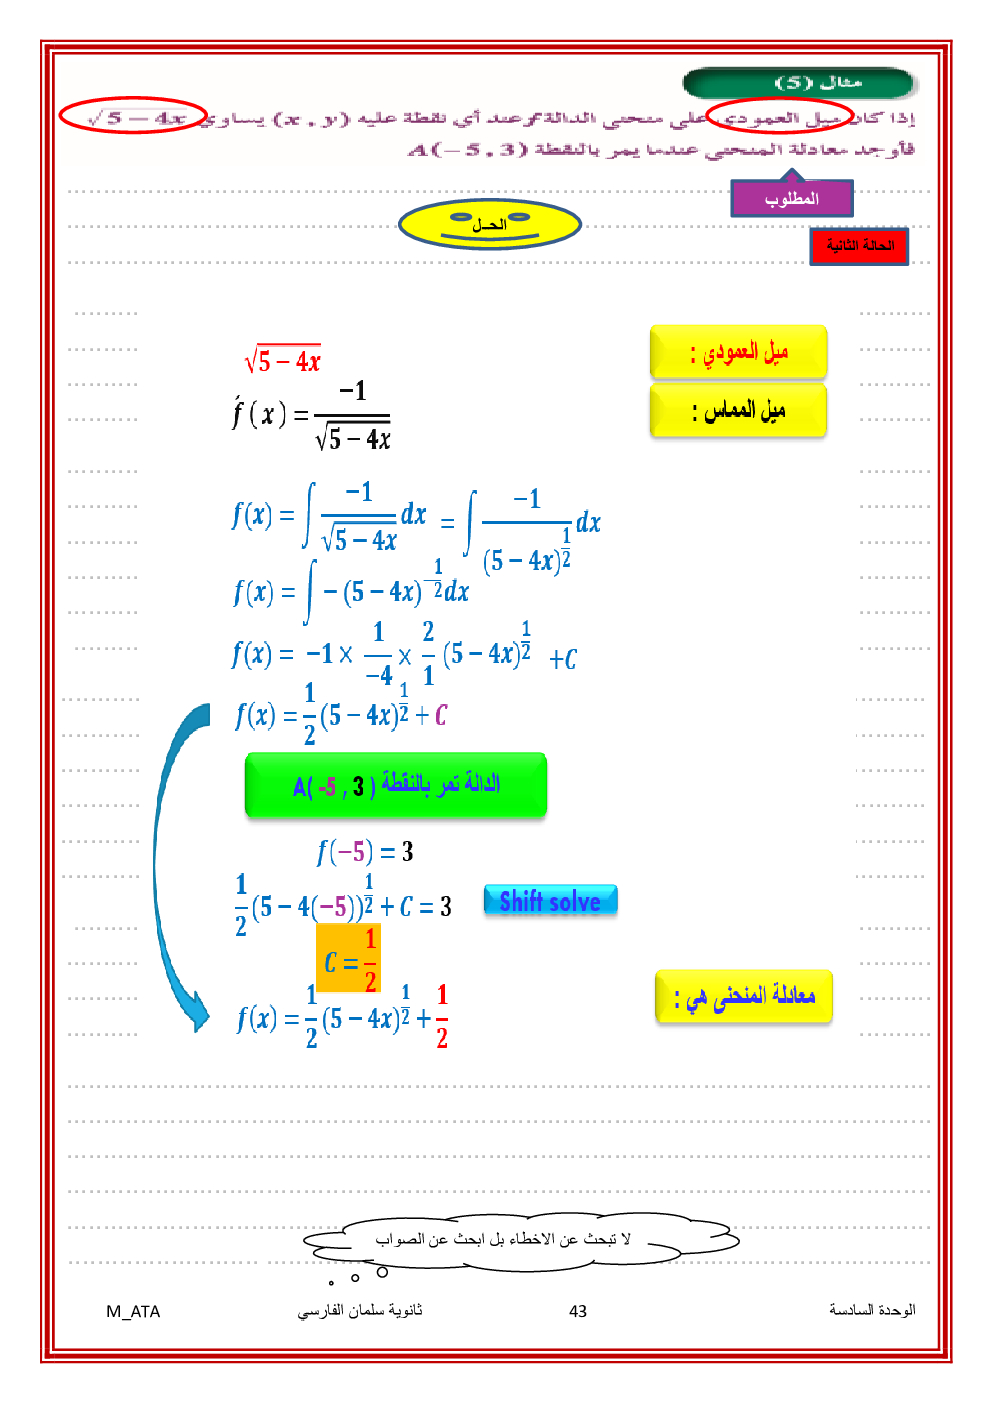 مثال (5)
إذا كان ميل العمودي على منحنى الدالة f عند أي نقطة عليه (x , y) يساوي √(5 − 4x)
فأوجد معادلة المنحنى عندما يمر بالنقطة A(−5 , 3)
المطلوب
الحــل
الحالة الثانية
ميل العمودي : √(5 − 4x)
ميل المماس : f́ ( x ) = −1/√(5 − 4x)
f(x) = ∫ −1/√(5 − 4x) dx = ∫ −1/(5 − 4x)^(1/2) dx
f(x) = ∫ − (5 − 4x)^(−1/2) dx
f(x) = −1 × 1/−4 × 2/1 (5 − 4x)^(1/2) +C
f(x) = 1/2 (5 − 4x)^(1/2) + C
الدالة تمر بالنقطة A( -5 , 3 )
f(−5) = 3
1/2 (5 − 4(−5))^(1/2) + C = 3 Shift solve
C = 1/2
معادلة المنحنى هي : f(x) = 1/2 (5 − 4x)^(1/2) + 1/2
لا تبحث عن الاخطاء بل ابحث عن الصواب
الوحدة السادسة 43 ثانوية سلمان الفارسي M_ATA